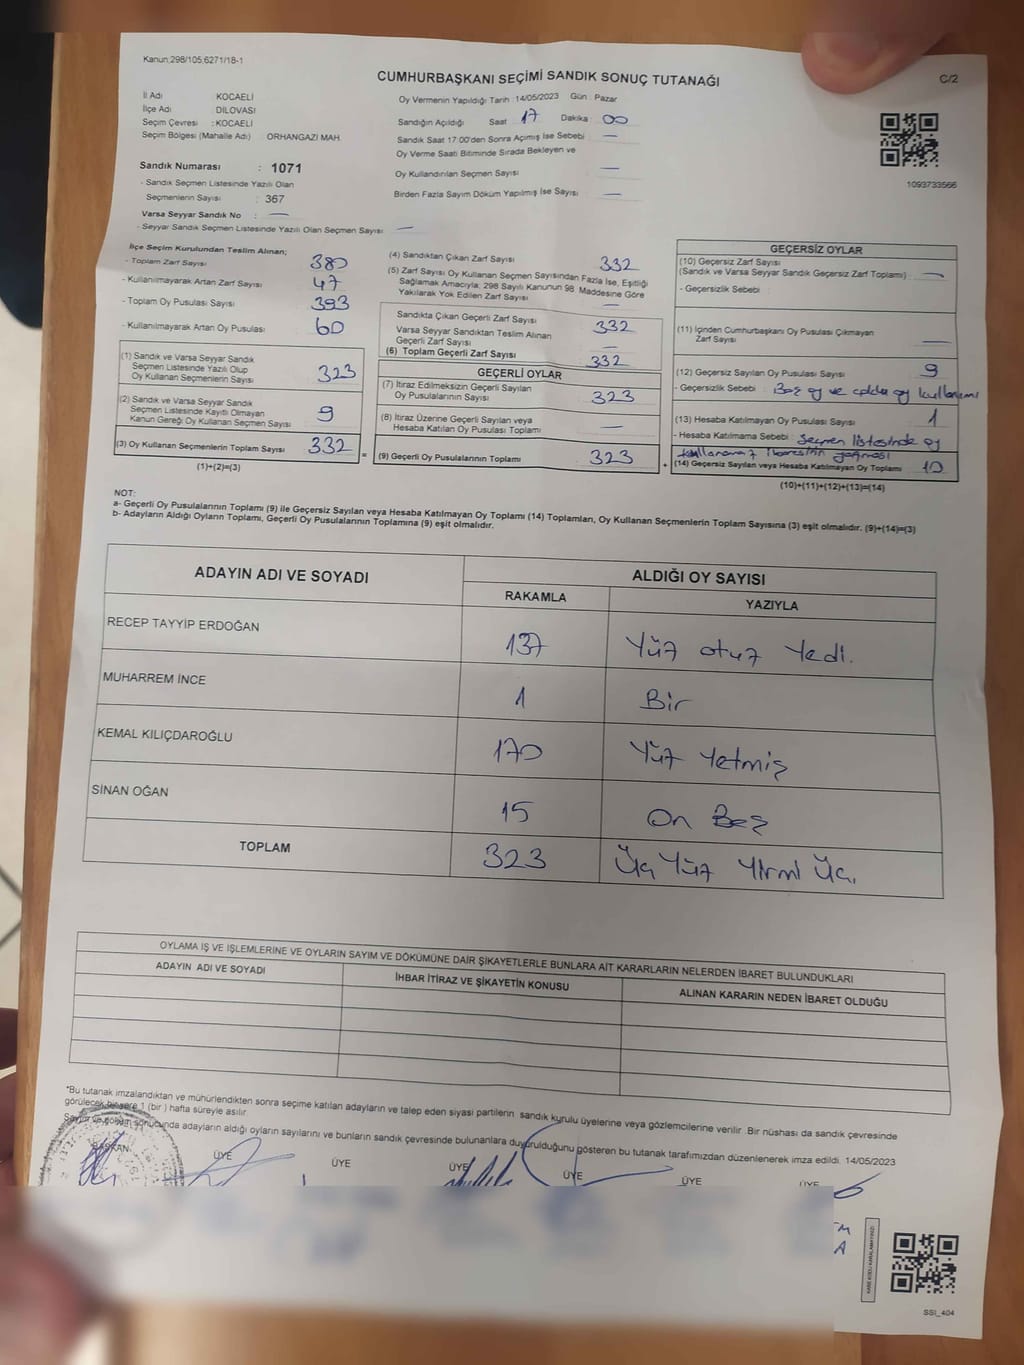 Kanun,298/105,6271/18-1
CUMHURBAŞKANI SEÇİMİ SANDIK SONUÇ TUTANAĞI
C/2
İl Adı KOCAELİ
İlçe Adı DİLOVASI
Seçim Çevresi : KOCAELİ
Seçim Bölgesi (Mahalle Adı) : ORHANGAZİ MAH.
Sandık Numarası : 1071
- Sandık Seçmen Listesinde Yazılı Olan
Seçmenlerin Sayısı : 367
Varsa Seyyar Sandık No : —
- Seyyar Sandık Seçmen Listesinde Yazılı Olan Seçmen Sayısı : —
Oy Vermenin Yapıldığı Tarih 14/05/2023 Gün : Pazar
Sandığın Açıldığı Saat : 17 Dakika : 00
Sandık Saat 17:00'den Sonra Açımış İse Sebebi : —
Oy Verme Saati Bitiminde Sırada Bekleyen ve
Oy Kullandırılan Seçmen Sayısı : —
Birden Fazla Sayım Döküm Yapılmış İse Sayısı : —
1093733566
İlçe Seçim Kurulundan Teslim Alınan;
- Toplam Zarf Sayısı : 380
- Kullanılmayarak Artan Zarf Sayısı : 47
- Toplam Oy Pusulası Sayısı : 393
- Kullanılmayarak Artan Oy Pusulası : 60
(1) Sandık ve Varsa Seyyar Sandık
Seçmen Listesinde Yazılı Olup
Oy Kullanan Seçmenlerin Sayısı : 323
(2) Sandık ve Varsa Seyyar Sandık
Seçmen Listesinde Kayıtlı Olmayan
Kanun Gereği Oy Kullanan Seçmen Sayısı : 9
(3) Oy Kullanan Seçmenlerin Toplam Sayısı : 332
(1)+(2)=(3)
=
(4) Sandıktan Çıkan Zarf Sayısı : 332
(5) Zarf Sayısı Oy Kullanan Seçmen Sayısından Fazla İse, Eşitliği
Sağlamak Amacıyla; 298 Sayılı Kanunun 98 Maddesine Göre
Yakılarak Yok Edilen Zarf Sayısı : —
Sandıkta Çıkan Geçerli Zarf Sayısı : 332
Varsa Seyyar Sandıktan Teslim Alınan
Geçerli Zarf Sayısı : —
(6) Toplam Geçerli Zarf Sayısı : 332
GEÇERLİ OYLAR
(7) İtiraz Edilmeksizin Geçerli Sayılan
Oy Pusulasının Sayısı : 323
(8) İtiraz Üzerine Geçerli Sayılan veya
Hesaba Katılan Oy Pusulası Toplamı : —
(9) Geçerli Oy Pusulalarının Toplamı : 323
+
GEÇERSİZ OYLAR
(10) Geçersiz Zarf Sayısı
(Sandık ve Varsa Seyyar Sandık Geçersiz Zarf Toplamı) : —
- Geçersizlik Sebebi :
(11) İçinden Cumhurbaşkanı Oy Pusulası Çıkmayan
Zarf Sayısı : —
(12) Geçersiz Sayılan Oy Pusulası Sayısı : 9
- Geçersizlik Sebebi : Boş oy ve çoklu oy kullanımı
(13) Hesaba Katılmayan Oy Pusulası Sayısı : 1
- Hesaba Katılmama Sebebi : Seçmen listesinde oy
kullanamaz ibaresinin yazması
(14) Geçersiz Sayılan veya Hesaba Katılmayan Oy Toplamı : 10
(10)+(11)+(12)+(13)=(14)
NOT:
a- Geçerli Oy Pusulalarının Toplamı (9) ile Geçersiz Sayılan veya Hesaba Katılmayan Oy Toplamı (14) Toplamları, Oy Kullanan Seçmenlerin Toplam Sayısına (3) eşit olmalıdır. (9)+(14)=(3)
b- Adayların Aldığı Oyların Toplamı, Geçerli Oy Pusulalarının Toplamına (9) eşit olmalıdır.
ADAYIN ADI VE SOYADI ALDIĞI OY SAYISI
RAKAMLA YAZIYLA
RECEP TAYYİP ERDOĞAN 137 Yüz otuz Yedi.
MUHARREM İNCE 1 Bir
KEMAL KILIÇDAROĞLU 170 Yüz Yetmiş
SİNAN OĞAN 15 On Beş
TOPLAM 323 Üç Yüz Yirmi Üç.
OYLAMA İŞ VE İŞLEMLERİNE VE OYLARIN SAYIM VE DÖKÜMÜNE DAİR ŞİKAYETLERLE BUNLARA AİT KARARLARIN NELERDEN İBARET BULUNDUKLARI
ADAYIN ADI VE SOYADI İHBAR İTİRAZ VE ŞİKAYETİN KONUSU ALINAN KARARIN NEDEN İBARET OLDUĞU
*Bu tutanak imzalandıktan ve mühürlendikten sonra seçime katılan adayların ve talep eden siyasi partilerin sandık kurulu üyelerine veya gözlemcilerine verilir. Bir nüshası da sandık çevresinde
görülecek bir yere 1 (bir) hafta süreyle asılır.
Sayım ve döküm sonucunda adayların aldığı oyların sayılarını ve bunların sandık çevresinde bulunanlara duyurulduğunu gösteren bu tutanak tarafımızdan düzenlenerek imza edildi. 14/05/2023
BAŞKAN ÜYE ÜYE ÜYE ÜYE ÜYE ÜYE
SSI_404